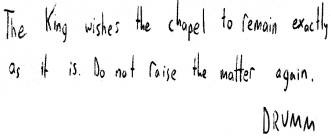 The King wishes the chapel to remain exactly
as it is. Do not raise the matter again.
DRUMM